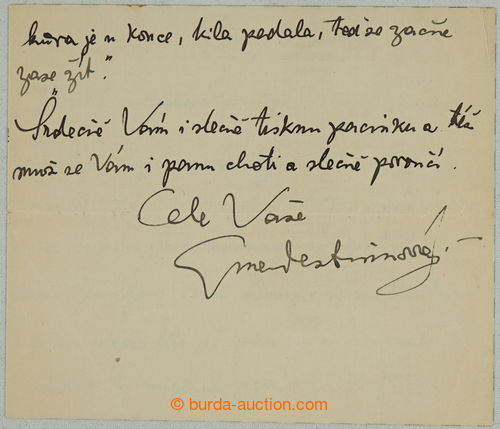 kůra je u konce, kila padala, teď se začne
zase žít."
Srdečně Vám i slečně tisknu pacinku a též
muž se Vám i panu choti a slečně poroučí.
Cele Vaše
Emadestinnová.
© burda-auction.com